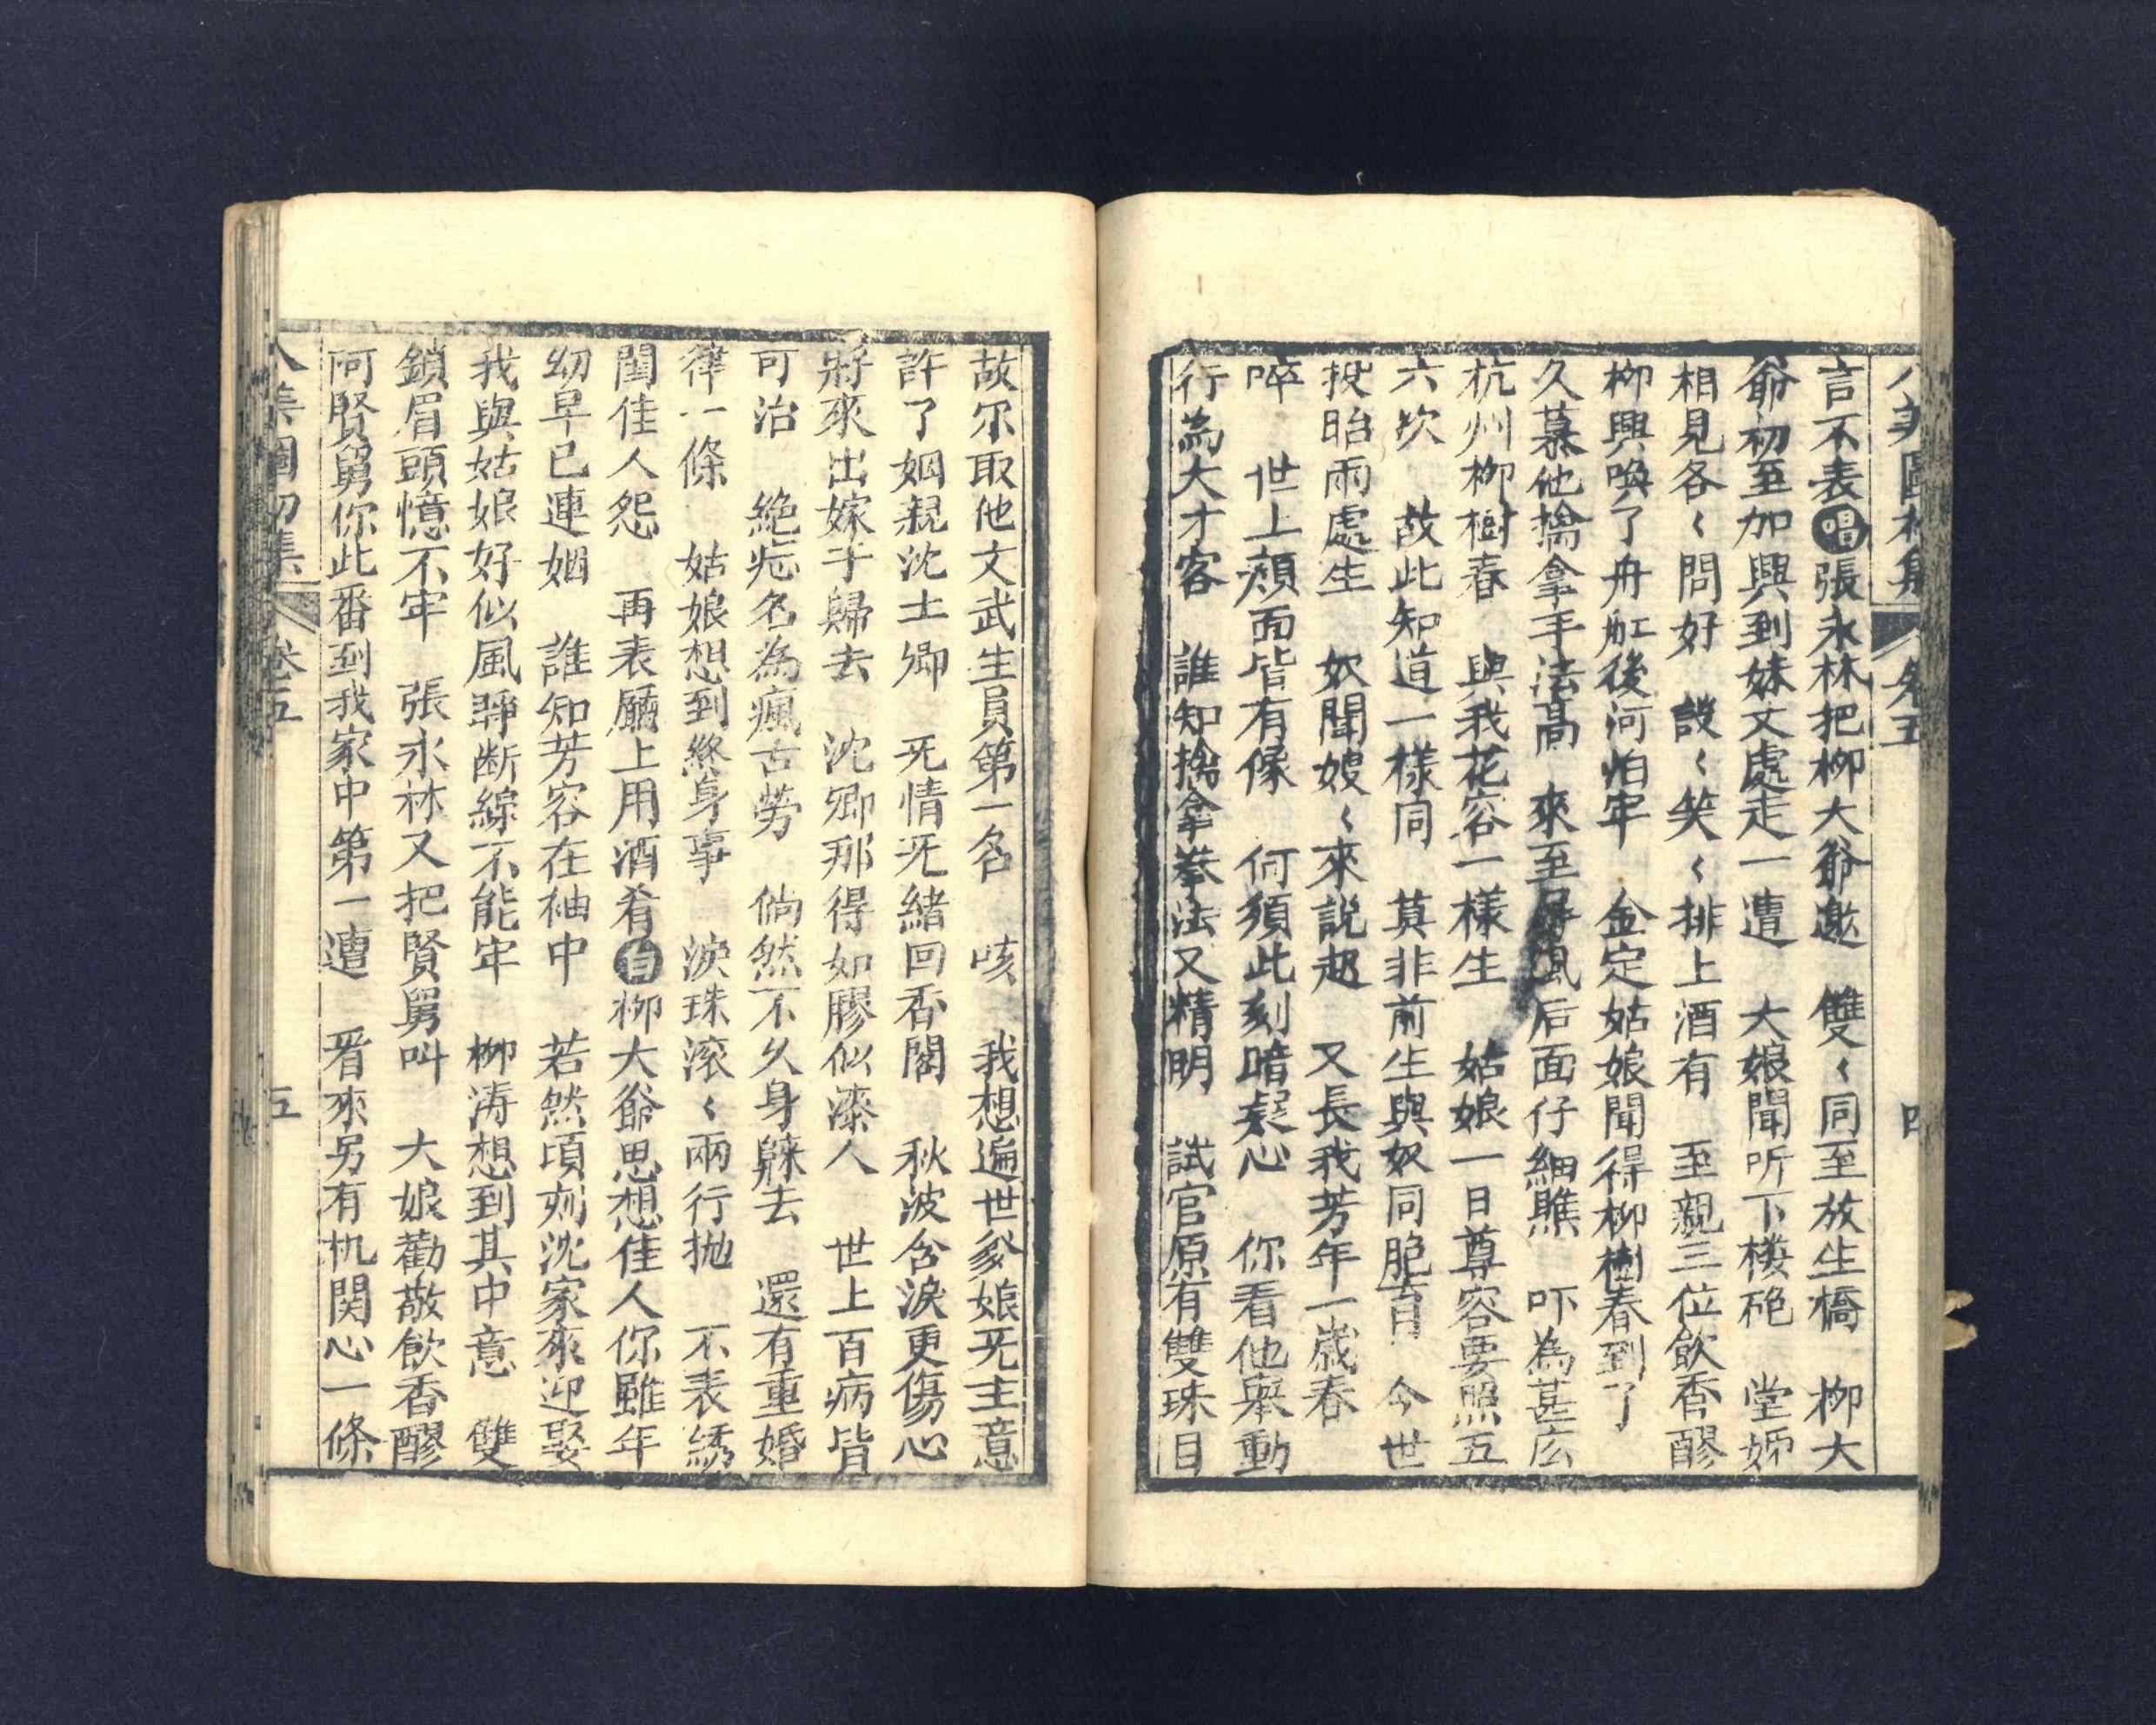 八美圖初集 卷五 四
言不表唱張永林把柳大爺邀 雙〻同至放生橋 柳大
爺初至加興到妹丈處走一遭 大娘聞听下楼硘 堂姊
相見各〻問好 談〻笑〻排上酒有 至親三位飲香醪
柳興喚了舟舡後河泊牢 金定姑娘聞得柳樹春到了
久慕他擒拿手法高 來至屏風后面仔細瞧 吓為甚庅
杭州柳樹春 與我花容一樣生 姑娘一日尊容要照五
六次 故此知道一樣同 莫非前生與奴同胞育 今世
投胎兩處生 奴聞嫂〻來説起 又長我芳年一歲春
啐 世上顏面皆有像 何須此刻暗疑心 你看他舉動
行為大才客 誰知擒拿拳法又精明 試官原有雙珠目
故尔取他文武生員第一名 咳 我想遍世爹娘旡主意
許了姻親沈士卿 旡情旡緒回香閣 秋波含淚更傷心
將來出嫁于歸去 沈卿那得如膠似漆人 世上百病皆
可治 絶症名為瘋古劳 倘然不久身躱去 還有重婚
律一條 姑娘想到終身事 淚珠滾〻兩行抛 不表綉
閨佳人怨 再表廳上用酒肴白柳大爺思想佳人你雖年
幼早已連姻 誰知芳容在袖中 若然頃刻沈家來迎娶
我與姑娘好似風箏断線不能牢 柳涛想到其中意 雙
鎖眉頭憶不牢 張永林又把賢舅叫 大娘勸敬飲香醪
阿賢舅你此番到我家中第一遭 看來另有机関心一條
八美圖初集 卷五 五